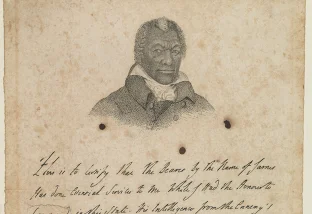 This is to Certify that the Bearer by the Name of James
Has done Essential Services to Me While I Had the Honour to
in this State. His Intelligence from the Enemy's